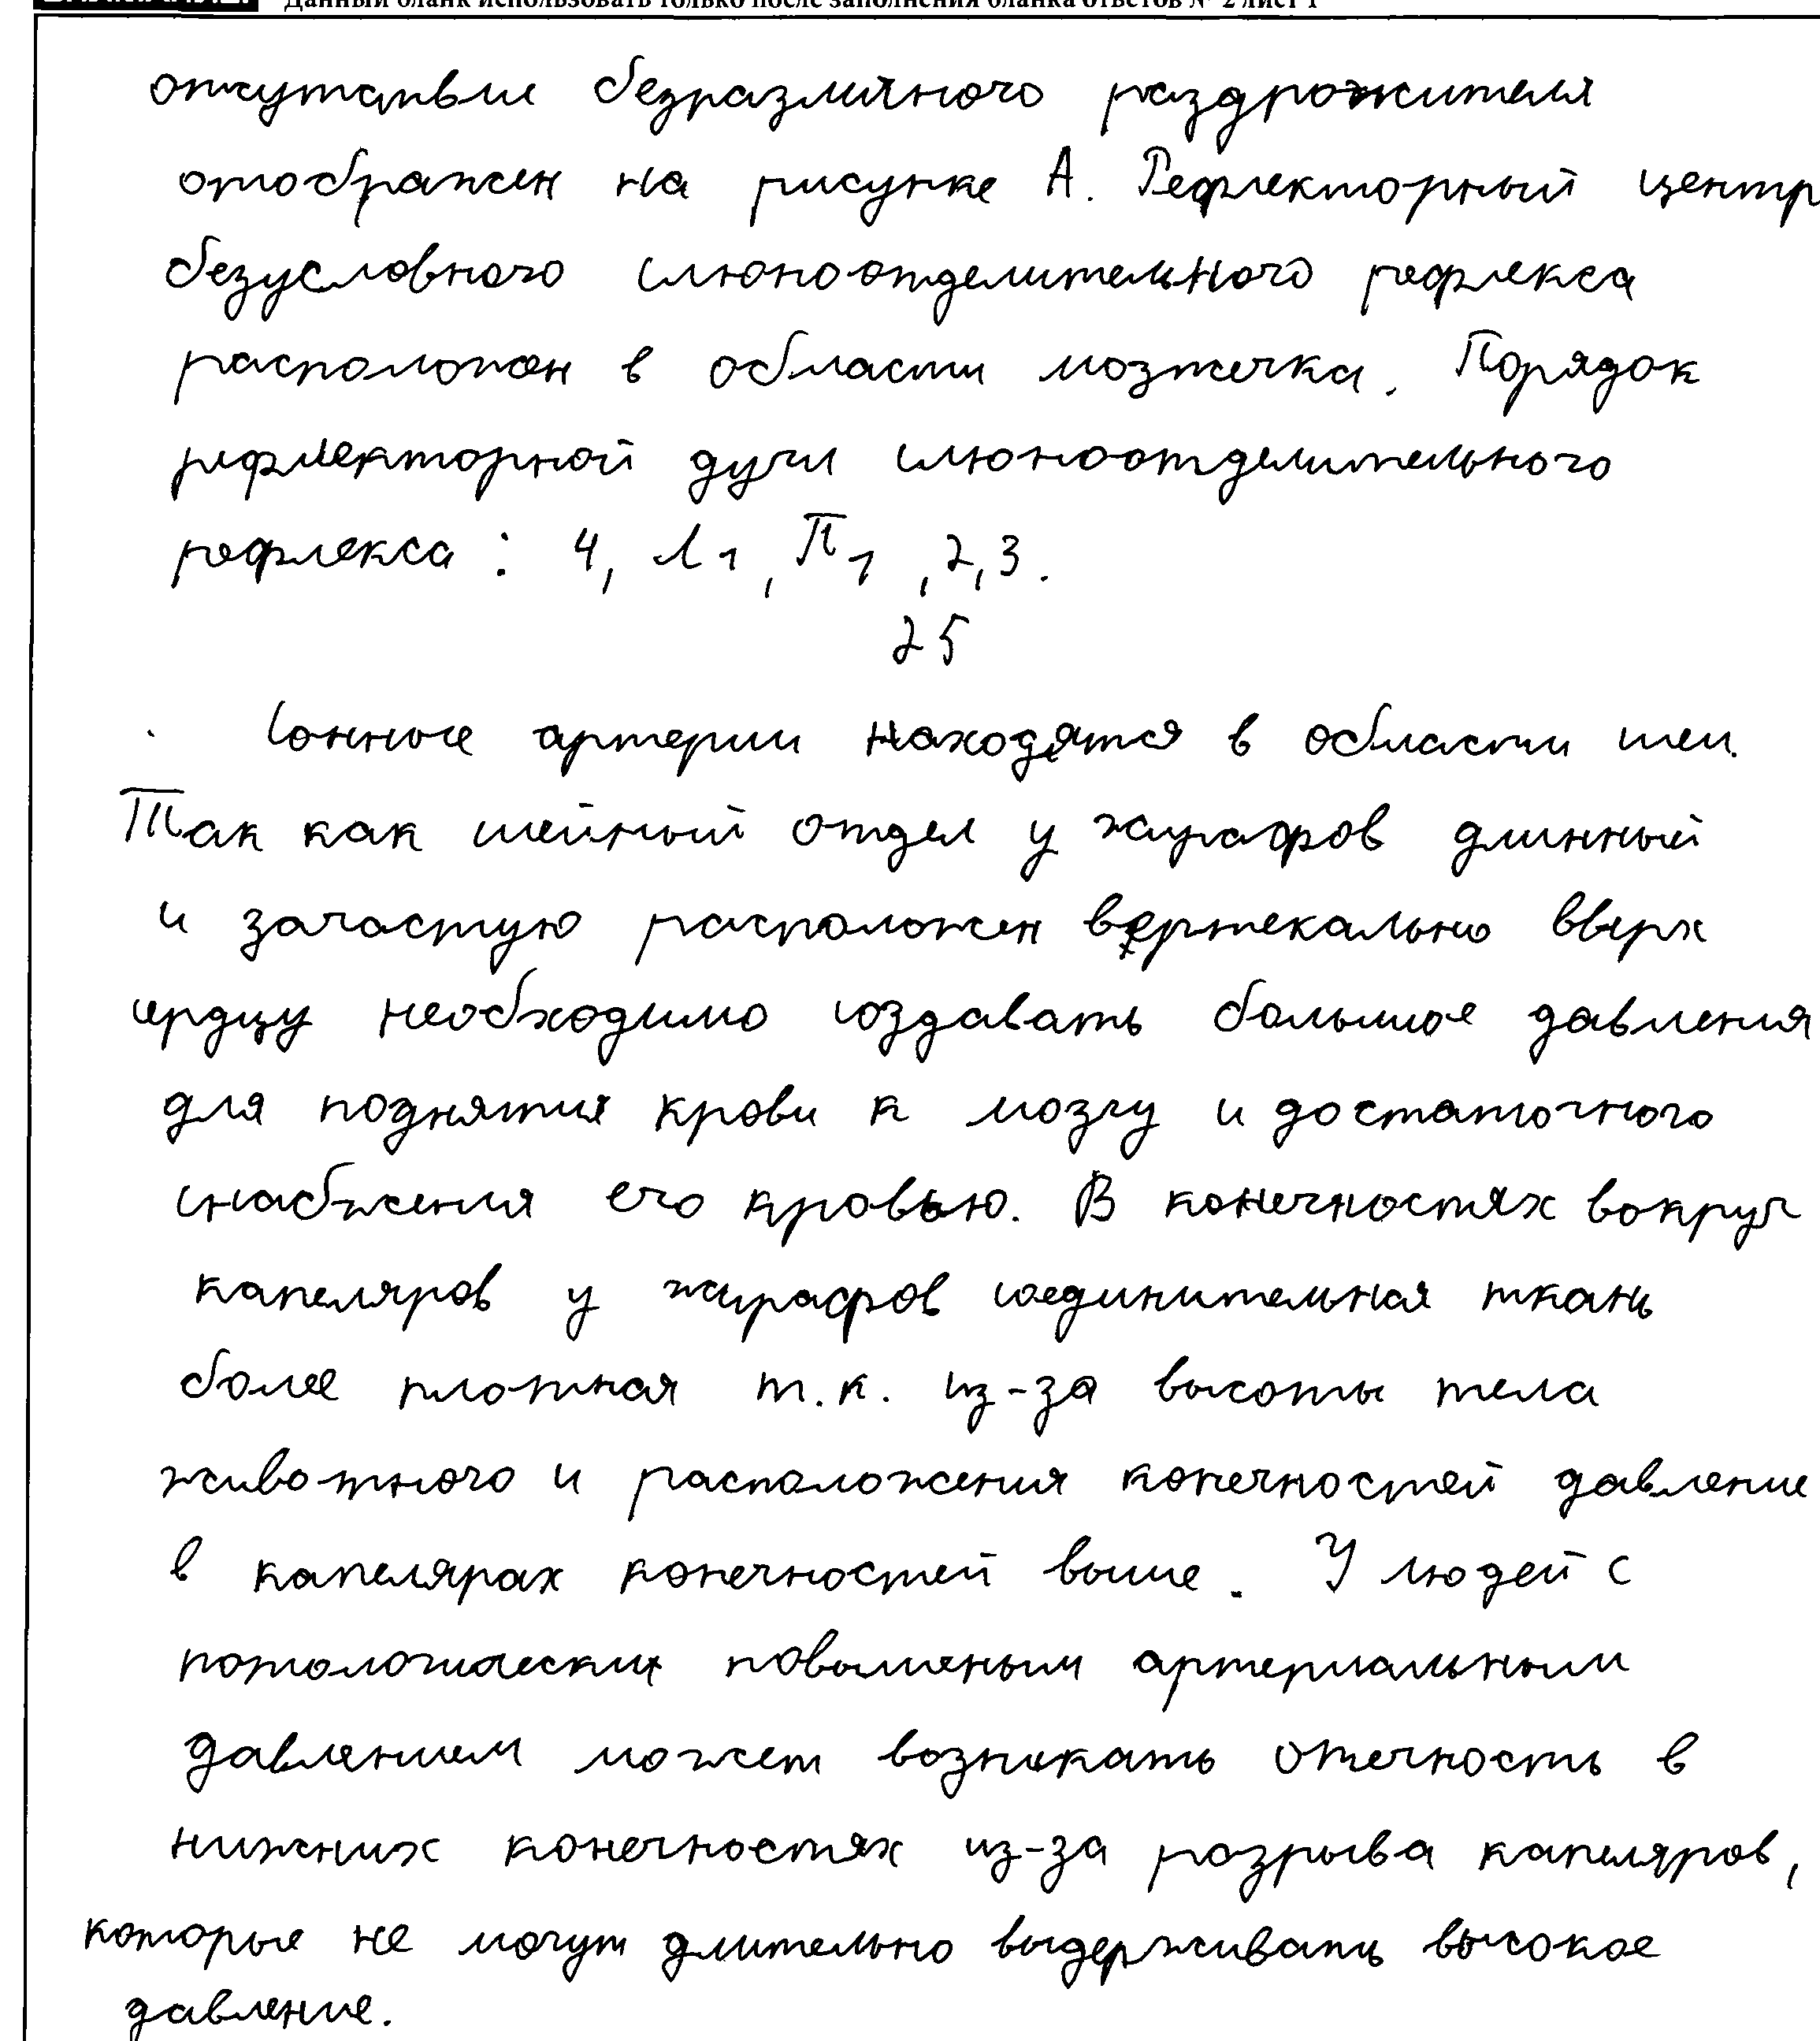 Данный бланк использовать только после заполнения бланка ответов № 2 лист 1
отсутствие безразличного раздрожителя
отображен на рисунке А. Рефлекторный центр
безусловного слюноотделительного рефлекса
расположен в области мозжечка. Порядок
рефлекторной дуги слюноотделительного
рефлекса: 4, Л1, П1, 2, 3.
25
Сонные артерии находятся в области шеи.
Так как шейный отдел у жирафов длинный
и зачастую расположен вертекально вверх
сердцу необходимо создавать большое давления
для поднятия крови к мозгу и достаточного
снабжения его кровью. В конечностях вокруг
капеляров у жирафов соединительная ткань
более плотная т.к. из-за высоты тела
животного и расположения конечностей давление
в капелярах конечностей выше. У людей с
потологических повышеным артериальным
давлением может возникать отечность в
нижних конечностях из-за розрыва капеляров,
которые не могут длительно выдерживать высокое
давление.